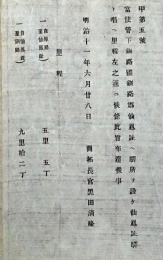 甲第五號
當使管下釧路國釧路郡仙鳳趾ヘ驛所ヲ設ケ仙鳳趾驛
ト唱ヘ里程左之通ニ候條此旨布達候事
明治十一年六月廿八日 開拓長官黒田清隆
里程
自厚岸 至仙鳳趾 五里五丁
自仙鳳趾 至釧路 九里拾二丁